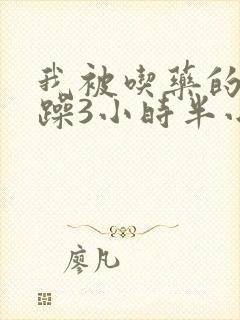 我被喫藥的
躁3小時半小
廖凡